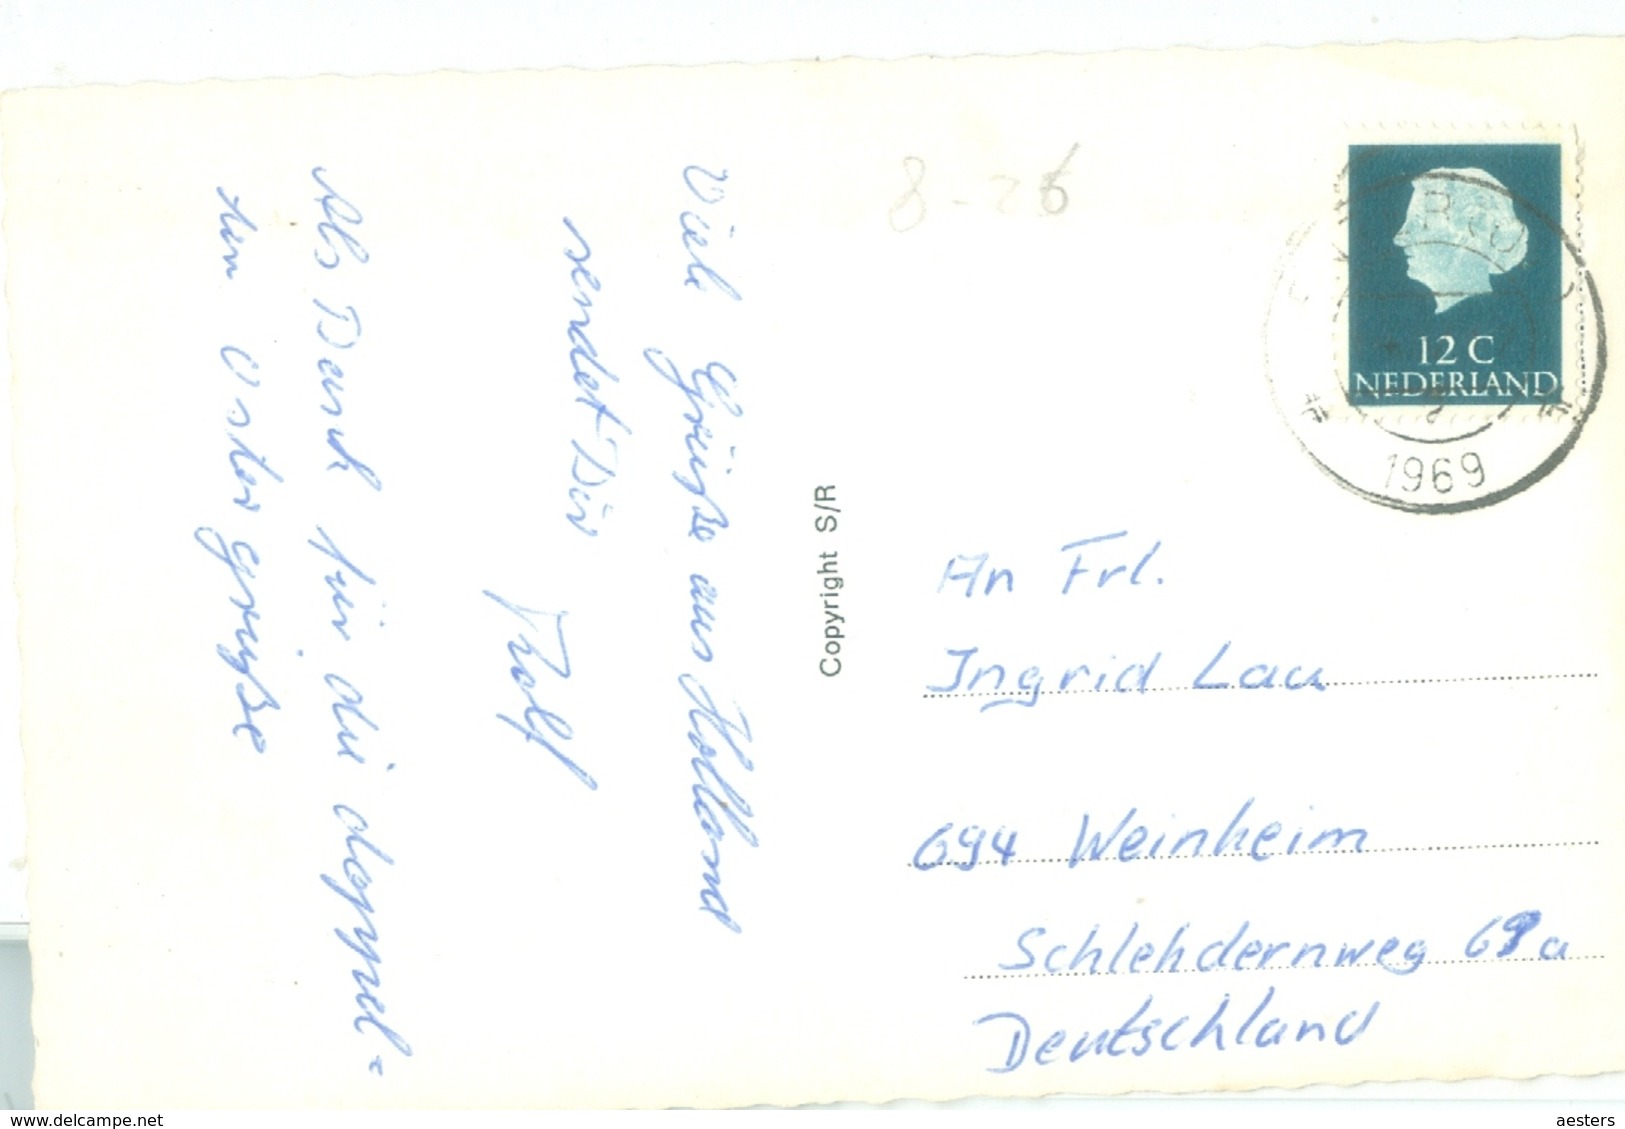 Viele Grüße aus Holland
sendet Dir
Rolf
Als Dank für die doppel=
ten Ostergrüße
Copyright S/R
8-26
12 C
NEDERLAND
1969
An Frl.
Ingrid Lau
694 Weinheim
Schlehdernweg a
Deutschland
http://www.delcampe.net
aesters